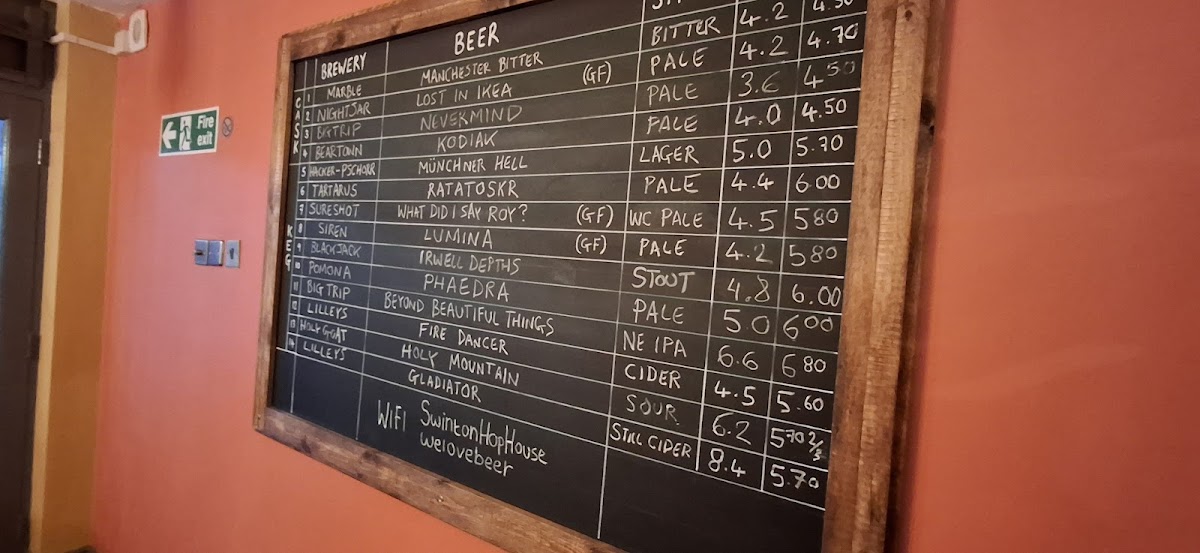 Fire exit
BREWERY BEER
CASK
1 MARBLE MANCHESTER BITTER BITTER 4.2
2 NIGHTJAR LOST IN IKEA (GF) PALE 4.2 4.70
3 BIG TRIP NEVERMIND PALE 3.6 4.50
4 BEARTOWN KODIAK PALE 4.0 4.50
KEG
5 HACKER-PSCHORR MÜNCHNER HELL LAGER 5.0 5.70
6 TARTARUS RATATOSKR PALE 4.4 6.00
7 SURESHOT WHAT DID I SAY ROY? (GF) WC PALE 4.5 580
8 SIREN LUMINA (GF) PALE 4.2 580
9 BLACKJACK IRWELL DEPTHS STOUT 4.8 6.00
10 POMONA PHAEDRA PALE 5.0 600
11 BIG TRIP BEYOND BEAUTIFUL THINGS NE IPA 6.6 680
12 LILLEYS FIRE DANCER CIDER 4.5 5.60
13 HOLY GOAT HOLY MOUNTAIN SOUR 6.2 570 2/3
14 LILLEYS GLADIATOR STILL CIDER 8.4 5.70
WIFI SwintonHopHouse
welovebeer